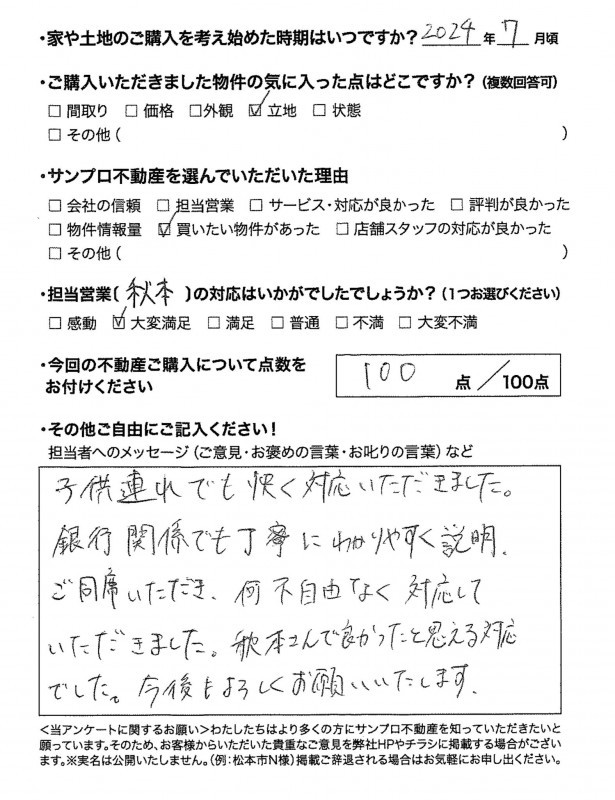 ・家や土地のご購入を考え始めた時期はいつですか? 2024 年 7 月頃
・ご購入いただきました物件の気に入った点はどこですか?(複数回答可)
□ 間取り □ 価格 □外観 ☑ 立地 □ 状態
□ その他( )
・サンプロ不動産を選んでいただいた理由
□ 会社の信頼 □ 担当営業 □ サービス・対応が良かった □ 評判が良かった
□ 物件情報量 ☑ 買いたい物件があった □ 店舗スタッフの対応が良かった
□ その他( )
・担当営業〔 秋本 〕の対応はいかがでしたでしょうか?(1つお選びください)
□ 感動 ☑ 大変満足 □ 満足 □ 普通 □ 不満 □ 大変不満
・今回の不動産ご購入について点数を
お付けください
100 点/100点
・その他ご自由にご記入ください!
担当者へのメッセージ(ご意見・お褒めの言葉・お叱りの言葉)など
子供連れでも快く対応いただきました。
銀行関係でも丁寧にわかりやすく説明、
ご同席いただき、何不自由なく対応して
いただきました。秋本さんで良かったと思える対応
でした。今後もよろしくお願いいたします。
<当アンケートに関するお願い>わたしたちはより多くの方にサンプロ不動産を知っていただきたいと
願っています。そのため、お客様からいただいた貴重なご意見を弊社HPやチラシに掲載する場合がござい
ます。※実名は公開いたしません。(例:松本市N様)掲載ご辞退される場合はお気軽にお申し出ください。